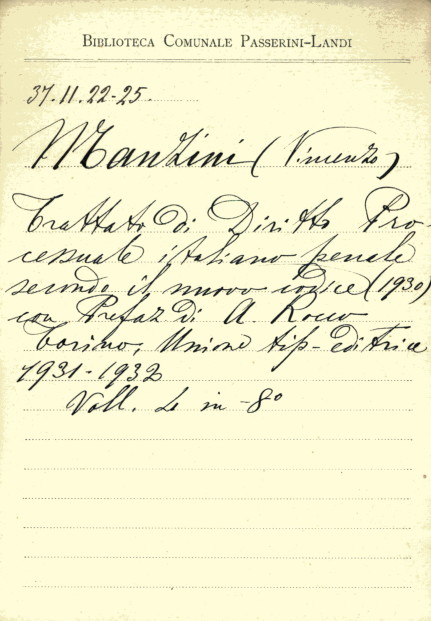 BIBLIOTECA COMUNALE PASSERINI-LANDI
37.11.22-25.
Manzini (Vincenzo)
Trattato di Diritto Pro-
cessuale italiano penale
secondo il nuovo codice (1930)
con Prefaz di A. Rocco
Torino, Unione tip-editrice
1931-1932
Voll. 4 in -8°